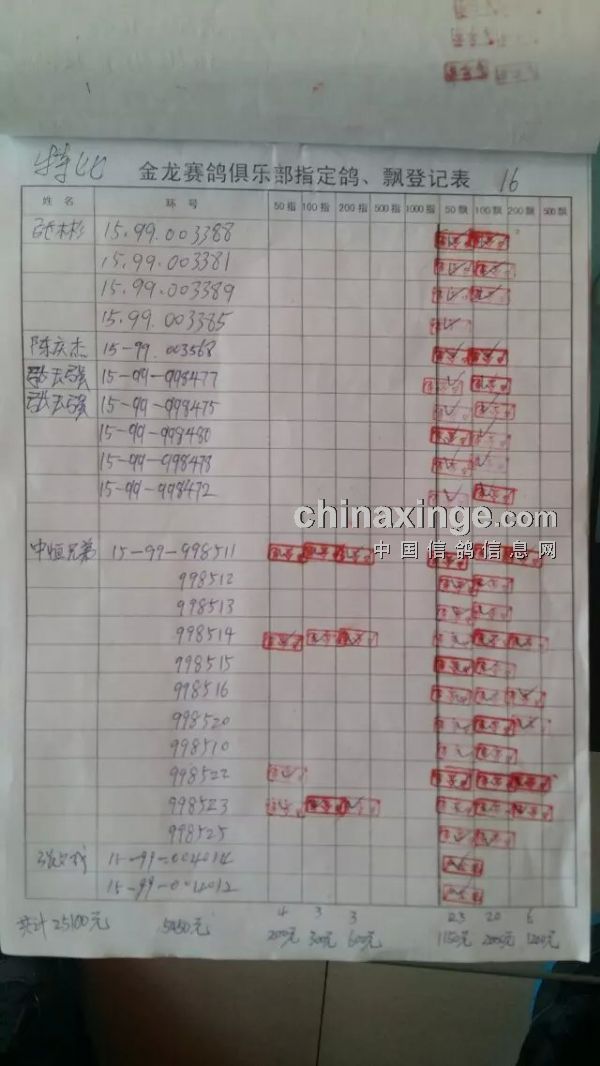 特比 金龙赛鸽俱乐部指定鸽、飘登记表 16
姓名 环号 50指 100指 200指 500指 1000指 50飘 100飘 200飘 500飘
15.99.003388
15.99.003381
15.99.003389
15.99.003385
陈庆杰 15-99.003568
15-99-998477
15-99-998475
15-99-998480
15-99-998478
15-99-998472
chinaxinge.com
中国信鸽信息网
中恒兄弟 15-99-998511
998512
998513
998514
998515
998516
998520
998510
998522
998523
998525
15-99-004014
15-99-004012
4 3 3 23 20 6
共计25100元 5450元 200元 300元 600元 1150元 2000元 1200元